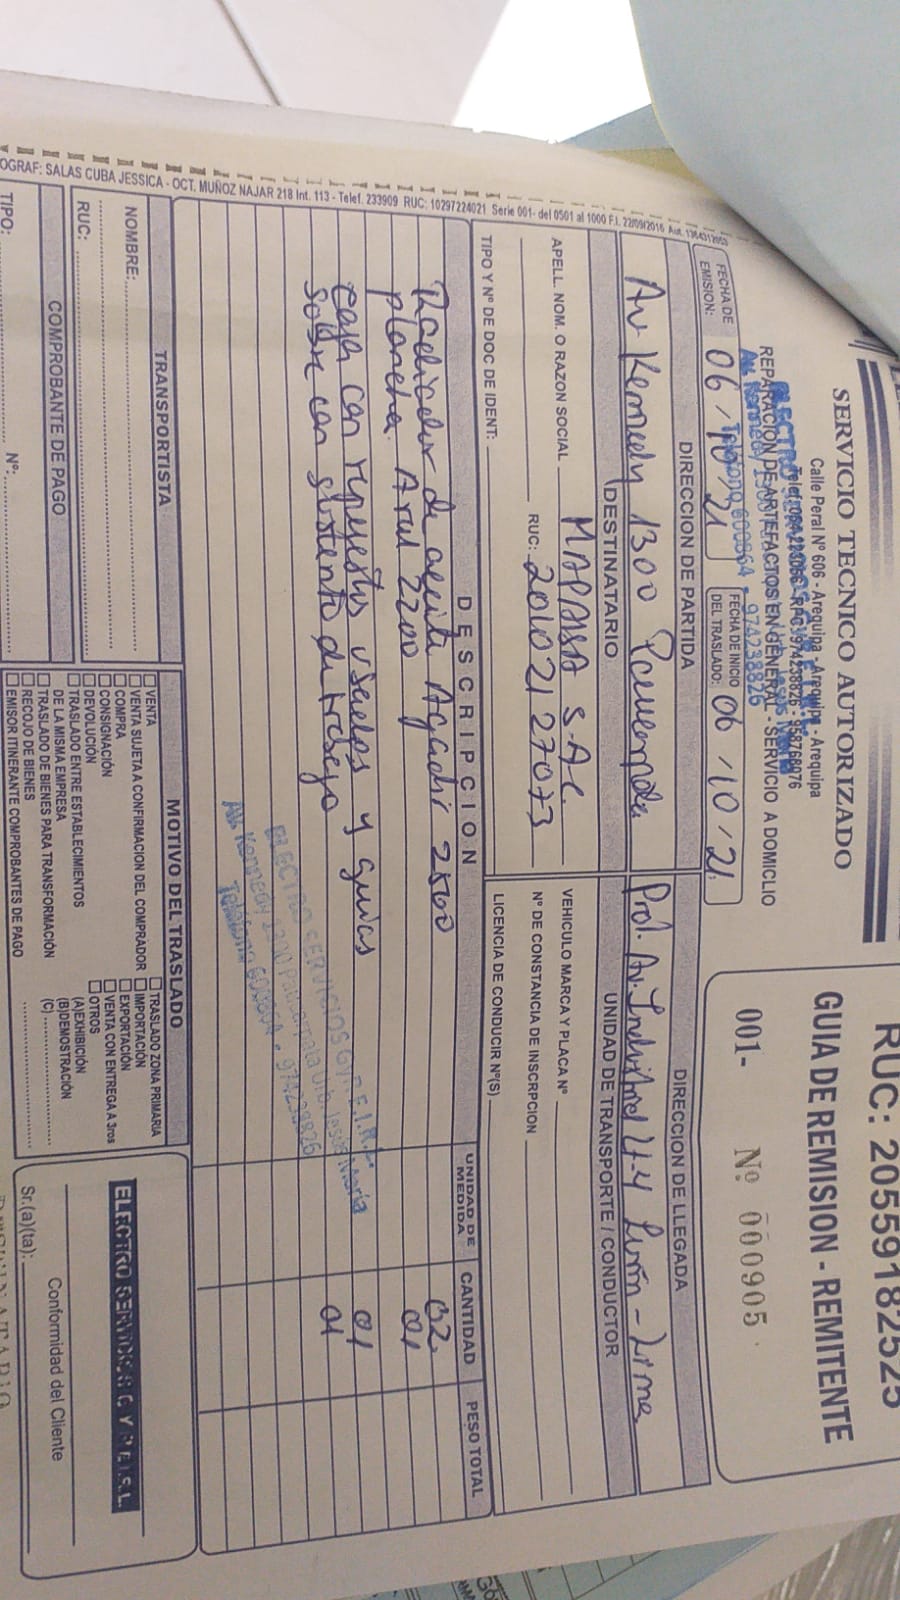 SERVICIO TECNICO AUTORIZADO
Calle Peral N° 606 - Arequipa - Arequipa - Arequipa
REPARACIÓN DE ARTEFACTOS EN GENERAL - SERVICIO A DOMICILIO
RUC: 20559182525
GUIA DE REMISION - REMITENTE
001- Nº 000905
FECHA DE EMISION: 06 / 10 / 21
FECHA DE INICIO DEL TRASLADO: 06 / 10 / 21
DIRECCION DE PARTIDA
Av Kennedy 1300 Paucarpata
DIRECCION DE LLEGADA
Prol. Av. Industrial Lurín - Lima
DESTINATARIO
APELL. NOM. O RAZON SOCIAL S.A.C.
RUC: 20102127073
TIPO Y Nº DE DOC DE IDENT:
UNIDAD DE TRANSPORTE / CONDUCTOR
VEHICULO MARCA Y PLACA Nº
Nº DE CONSTANCIA DE INSCRPCION
LICENCIA DE CONDUCIR Nº(S)
DESCRIPCION UNIDAD DE MEDIDA CANTIDAD PESO TOTAL
Radiador de aceite Agadir 2500 02
plancha Axul 2200 01
caja con repuestos usados y guias 01
sobre con sustento de trabajo 01
ELECTRO SERVICIOS G Y P E.I.R.L.
Av. Kennedy 1300 Paucarpata Urb. Jesus Maria
Telefono 600864 - 974238826
OGRAF: SALAS CUBA JESSICA - OCT. MUÑOZ NAJAR 218 Int. 113 - Telef. 233909 RUC: 10297224021 Serie 001- del 0501 al 1000 F.I. 22/09/2016
TRANSPORTISTA
NOMBRE:
RUC:
COMPROBANTE DE PAGO
TIPO: Nº:
MOTIVO DEL TRASLADO
VENTA
VENTA SUJETA A CONFIRMACION DEL COMPRADOR
COMPRA
CONSIGNACIÓN
DEVOLUCION
TRASLADO ENTRE ESTABLECIMIENTOS
DE LA MISMA EMPRESA
TRASLADO DE BIENES PARA TRANSFORMACIÓN
RECOJO DE BIENES
EMISOR ITINERANTE COMPROBANTES DE PAGO
TRASLADO ZONA PRIMARIA
IMPORTACIÓN
EXPORTACIÓN
VENTA CON ENTREGA A 3ros
OTROS
(A)EXHIBICIÓN
(B)DEMOSTRACIÓN
(C)
Conformidad del Cliente
Sr.(a)(ta):